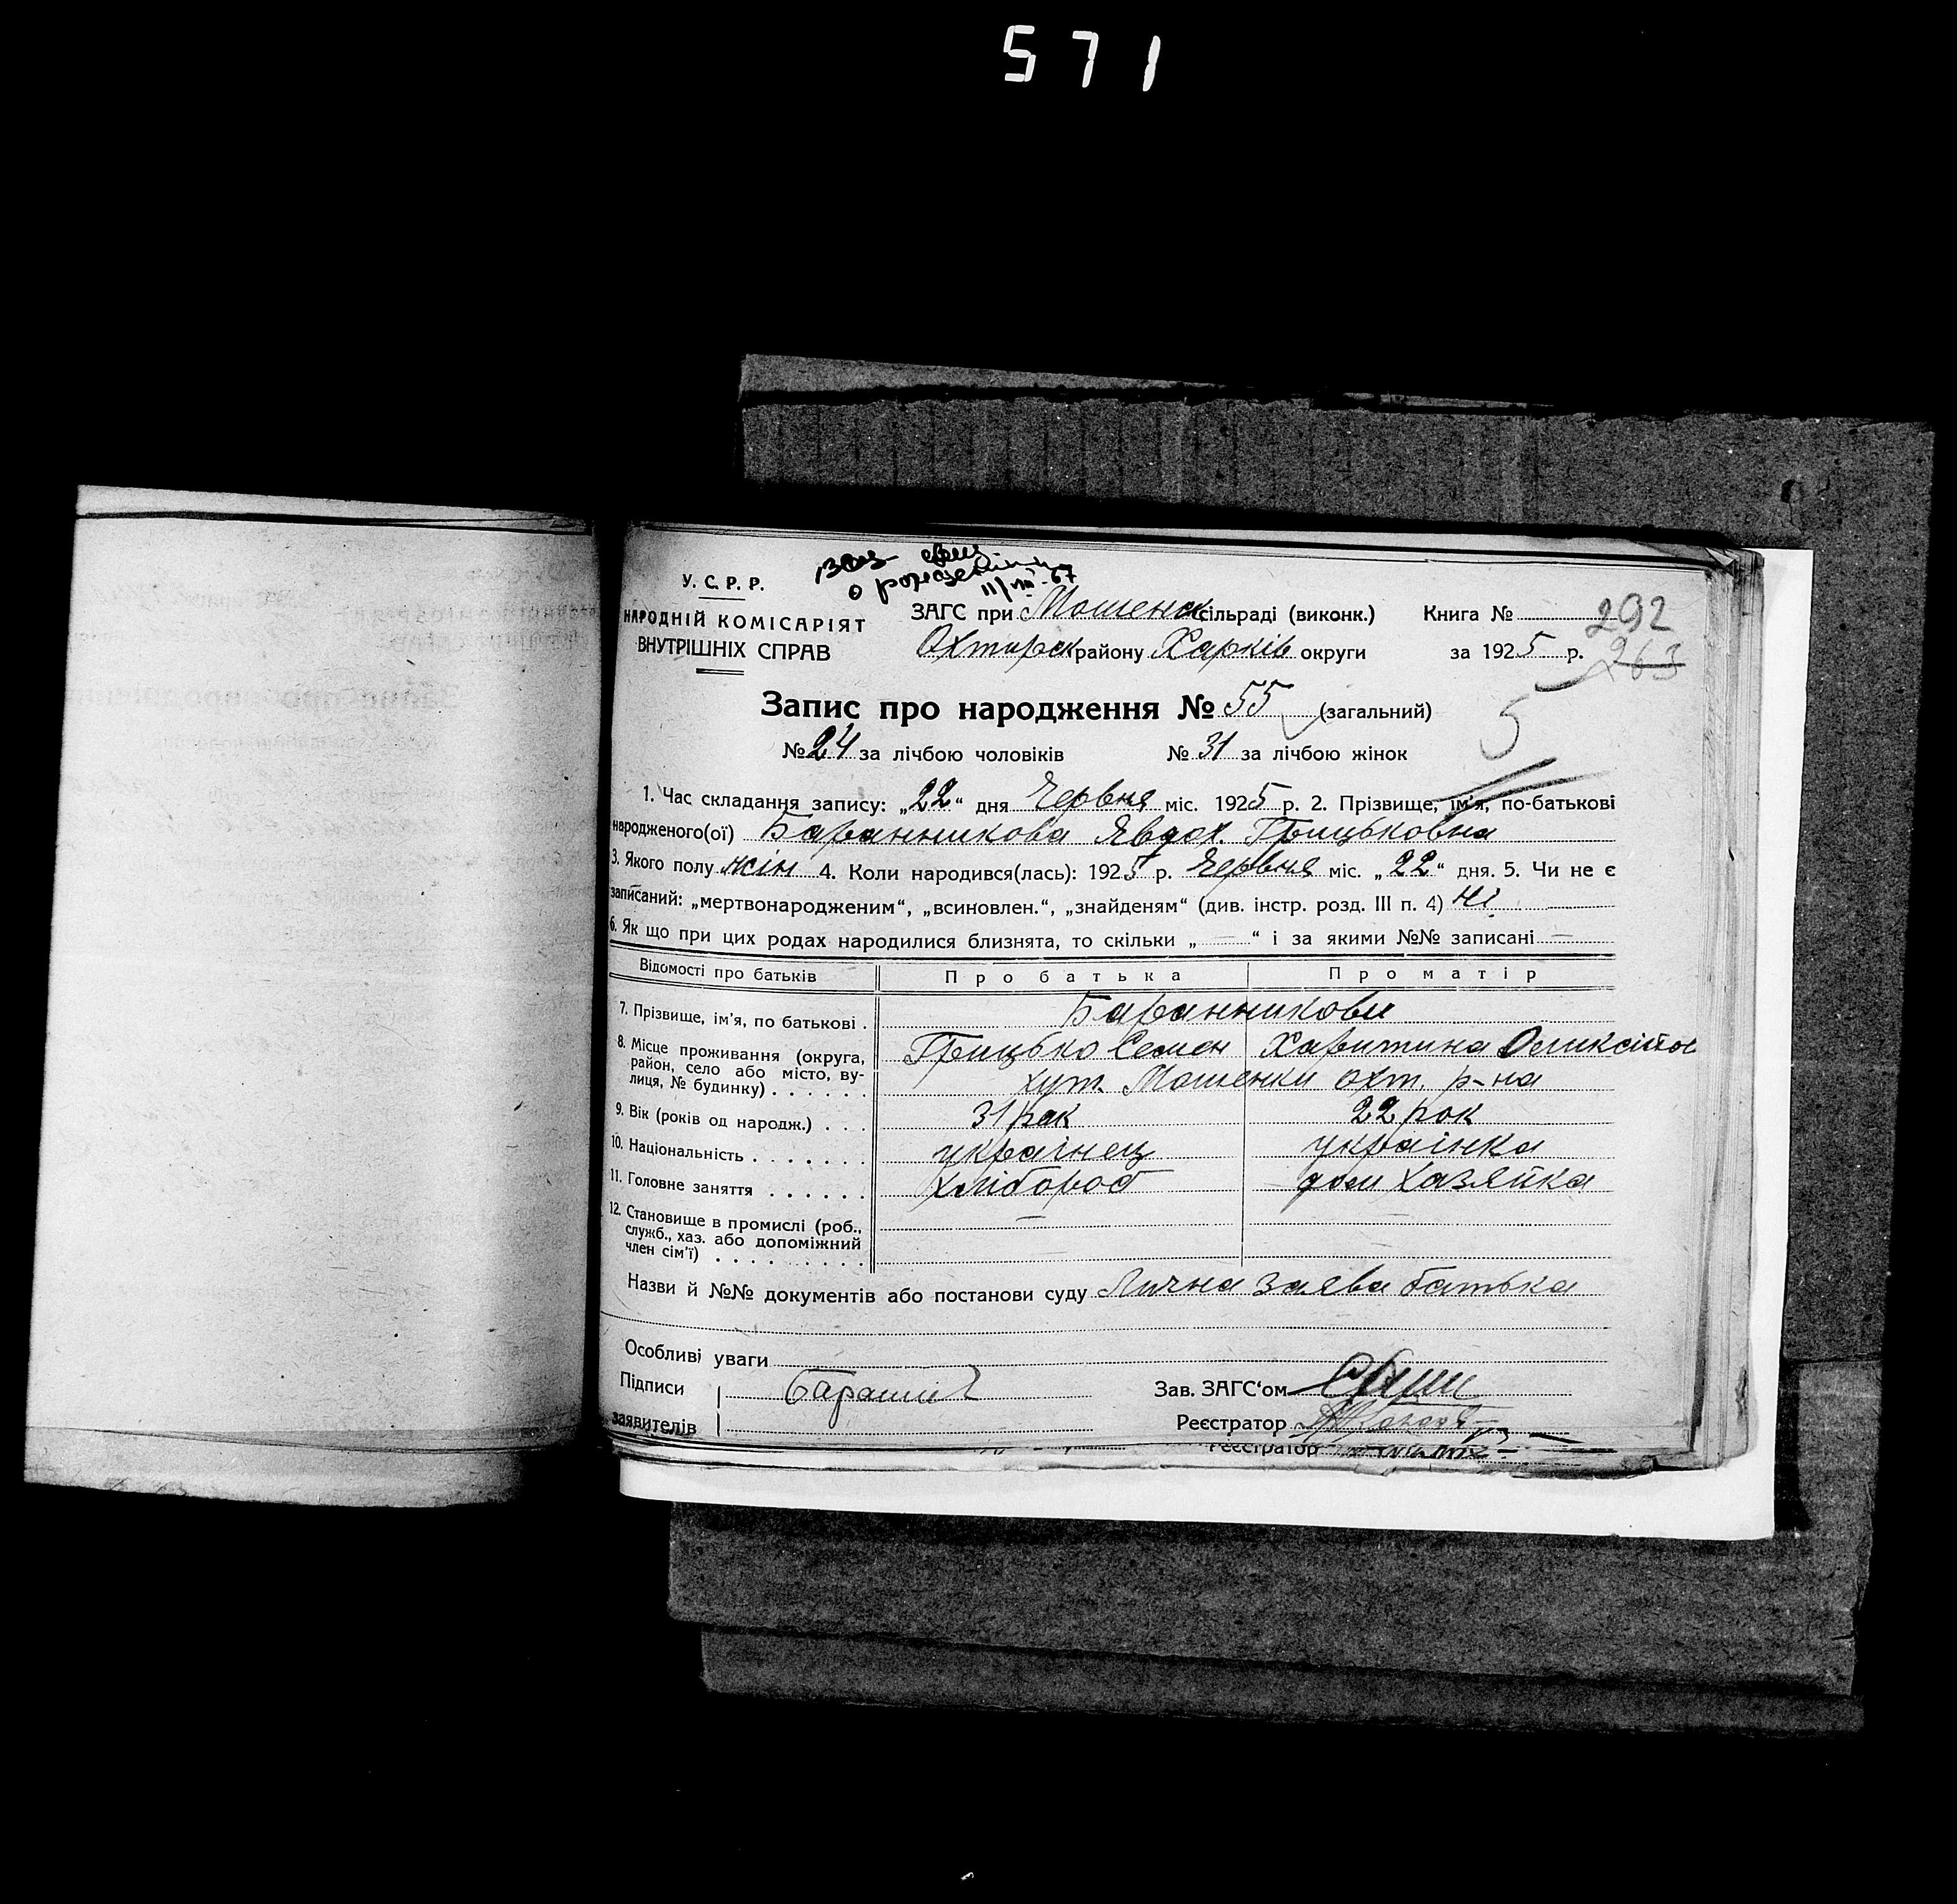 571
о рождении
11/VII-67
У. С. Р. Р.
НАРОДНІЙ КОМІСАРІЯТ
ВНУТРІШНІХ СПРАВ
ЗАГС при Мошенк сільраді (виконк.) Книга №
292
Охтирск району Харків округи за 1925 р.
263
Запис про народження № 55 (загальний)
5
№ 24 за лічбою чоловіків № 31 за лічбою жінок
1. Час складання запису: „22“ дня Червня міс. 1925 р. 2. Прізвище, ім'я, по-батькові
народженого(ої) Баранникова Явдох. Грицьковна
3. Якого полу жін 4. Коли народився(лась): 1925 р. Червня міс. „22“ дня. 5. Чи не є
записаний: „мертвонародженим“, „всиновлен.“, „знайденям“ (див. інстр. розд. III п. 4) Ні
6. Як що при цих родах народилися близнята, то скільки „—“ і за якими №№ записані —
Відомості про батьків Про батька Про матір
7. Прізвище, ім'я, по батькові . Баранникови
Грицько Семен Харитина
8. Місце проживання (округа,
район, село або місто, ву-
лиця, № будинку) . . . . . . хут. Мошенки Охт. р-на
9. Вік (років од народж.) . . . 31 рок 22 рок
10. Національність . . . . . . . українец українка
11. Головне заняття . . . . . . хлібороб дом хазяйка
12. Становище в промислі (роб.,
служб., хаз. або допоміжний
член сім'ї) . . . . . . . . . . —
Назви й №№ документів або постанови суду Лична заява батька
Особливі уваги
Підписи
заявителів
Зав. ЗАГС'ом
Реєстратор
Реєстратор